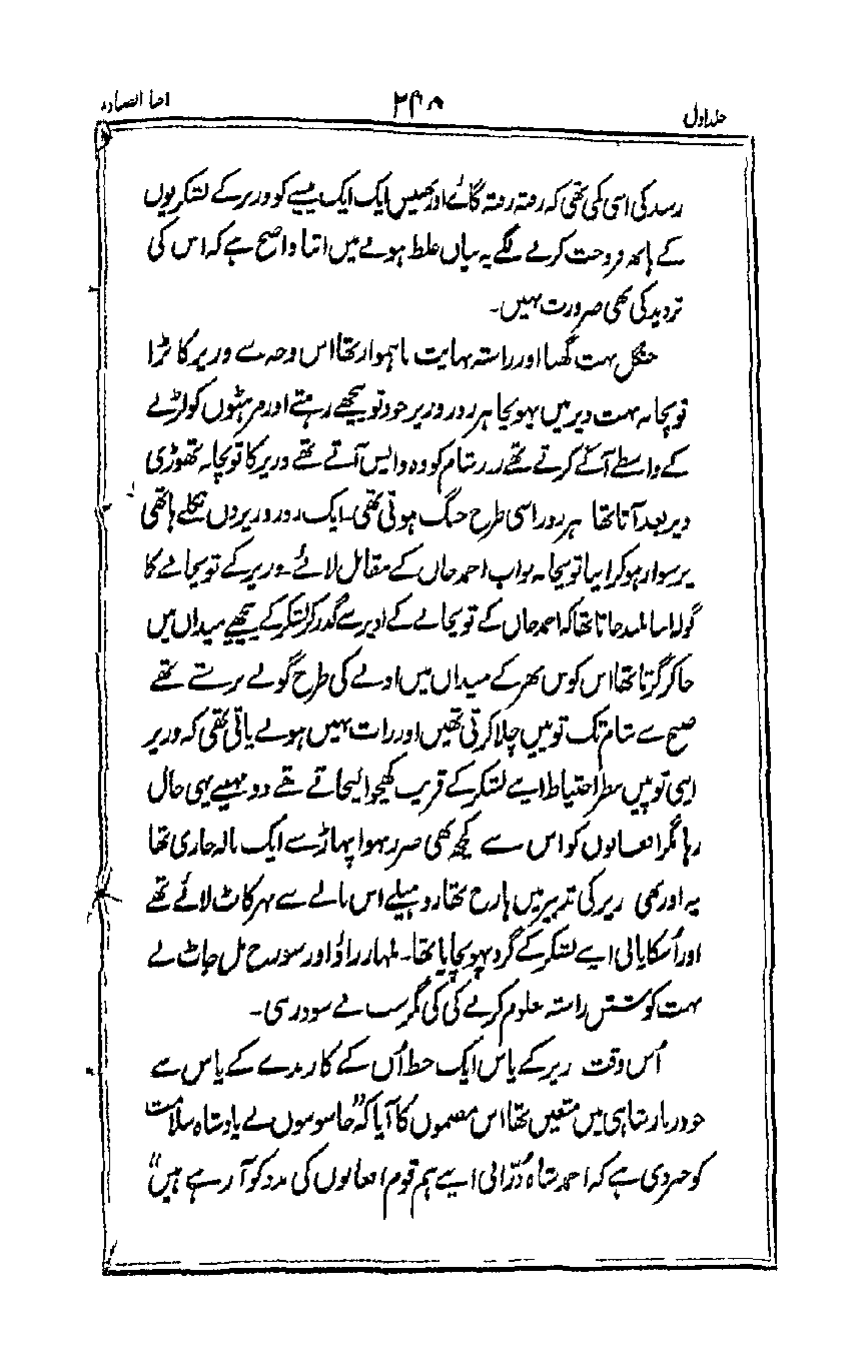 جلد اول ۲۴۵ اخبار الصنادید
رسد کی ایسی کمی تھی کہ رفتہ رفتہ گائے اور بھینس ایک ایک پیسے کو وزیر کے لشکریوں
کے ہاتھ فروخت کرنے لگے یہ بیان غلط ہونے میں اتنا واضح ہے کہ اس کی
تردید کی بھی ضرورت نہیں۔
جنگل بہت گھنا اور راستہ نہایت ناہموار تھا اس وجہ سے وزیر کا بڑا
توپخانہ بہت دیر میں پہونچا ہر روز وزیر خود تو پیچھے رہتے اور مرہٹوں کو لڑنے
کے واسطے آگے کرتے تھے اور شام کو وہ واپس آتے تھے وزیر کا توپخانہ تھوڑی
دیر بعد آتا تھا ہر روز اسی طرح جنگ ہوتی تھی۔ ایک روز وزیر دن نکلے ہاتھی
پر سوار ہو کر اپنا توپخانہ نواب احمد خاں کے مقابل لائے۔ وزیر کے توپخانے کا
گولا اتنا بلند جاتا تھا کہ احمد خاں کے توپخانے کے اوپر سے گذر کر لشکر کے پیچھے میدان میں
جا کر گرتا تھا اس کوس بھر کے میدان میں اولے کی طرح گولے برستے تھے
صبح سے شام تک توپیں چلا کرتی تھیں اور رات نہیں ہونے پاتی تھی کہ وزیر
اپنی توپیں بنظر احتیاط اپنے لشکر کے قریب کھچوا لیجاتے تھے دو مہینے یہی حال
رہا مگر افغانوں کو اس سے کچھ بھی ضرر نہوا پہاڑ سے ایک نالہ جاری تھا
یہ اور بھی وزیر کی تدبیر میں ہارج تھا روہیلے اس نالے سے نہر کاٹ لائے تھے
اور اُسکا پانی اپنے لشکر کے گرد پہونچایا تھا۔ ملہار راؤ اور سورج مل جاٹ نے
بہت کوشش راستہ معلوم کرنے کی کی مگر سب بے سود رہی۔
اُس وقت وزیر کے پاس ایک خط اُن کے کارندے کے پاس سے
جو دربار شاہی میں متعین تھا اس مضمون کا آیا کہ ”جاسوسوں نے بادشاہ سلامت
کو خبر دی ہے کہ احمد شاہ دُرّانی اپنے ہم قوم افغانوں کی مدد کو آ رہے ہیں“